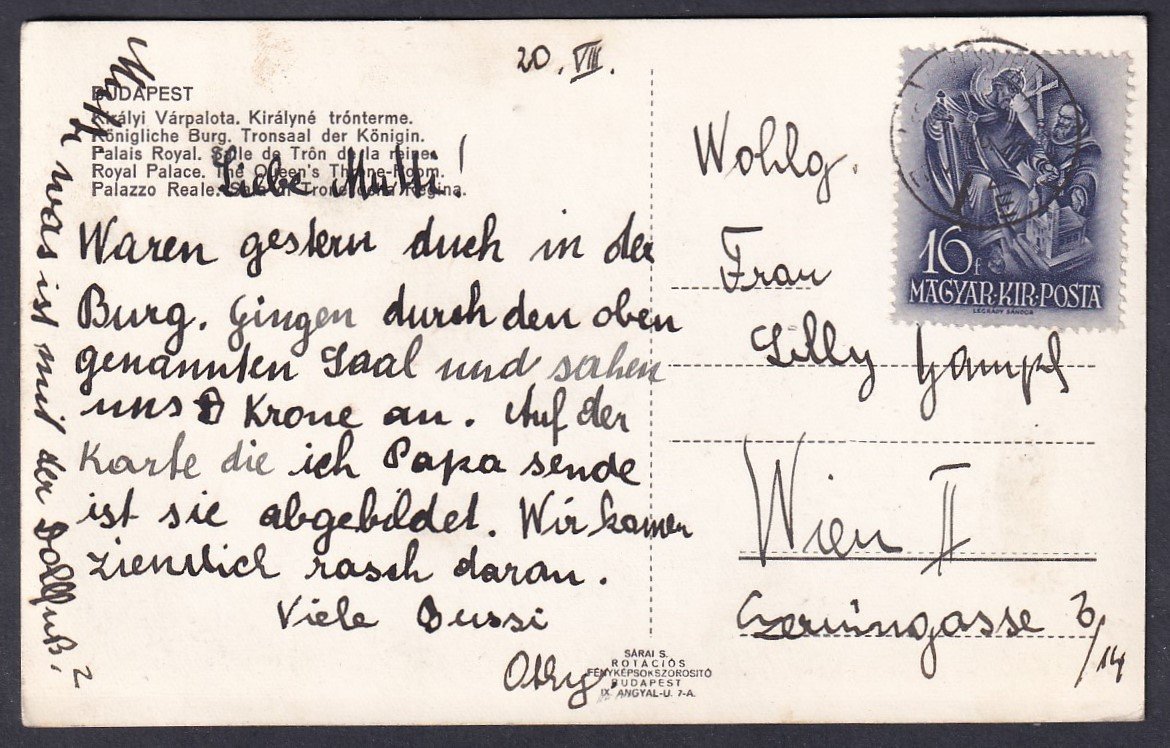 20. VIII.
BUDAPEST
Királyi Várpalota. Királyné trónterme.
Königliche Burg. Tronsaal der Königin.
Palais Royal. Salle de Trôn de la reine.
Royal Palace. The Queen's Throne-Room.
Palazzo Reale. Sala di Trono della Regina.
Liebe Mutti!
Waren gestern duch in der
Burg. Gingen durch den oben
genannten Saal und sahen
uns Krone an. Auf der
Karte die ich Papa sende
ist sie abgebildet. Wir kamen
ziemlich rasch daran.
Viele Bussi
was ist mit der Dollfuß?
SÁRAI S.
ROTÁCIÓS
FÉNYKÉPSOKSZOROSITÓ
BUDAPEST
IX. ANGYAL-U. 7-A.
16f
MAGYAR·KIR·POSTA
LEGRÁDY SÁNDOR
Wohlg.
Frau
Lilly
Wien II
Czerningasse
/14